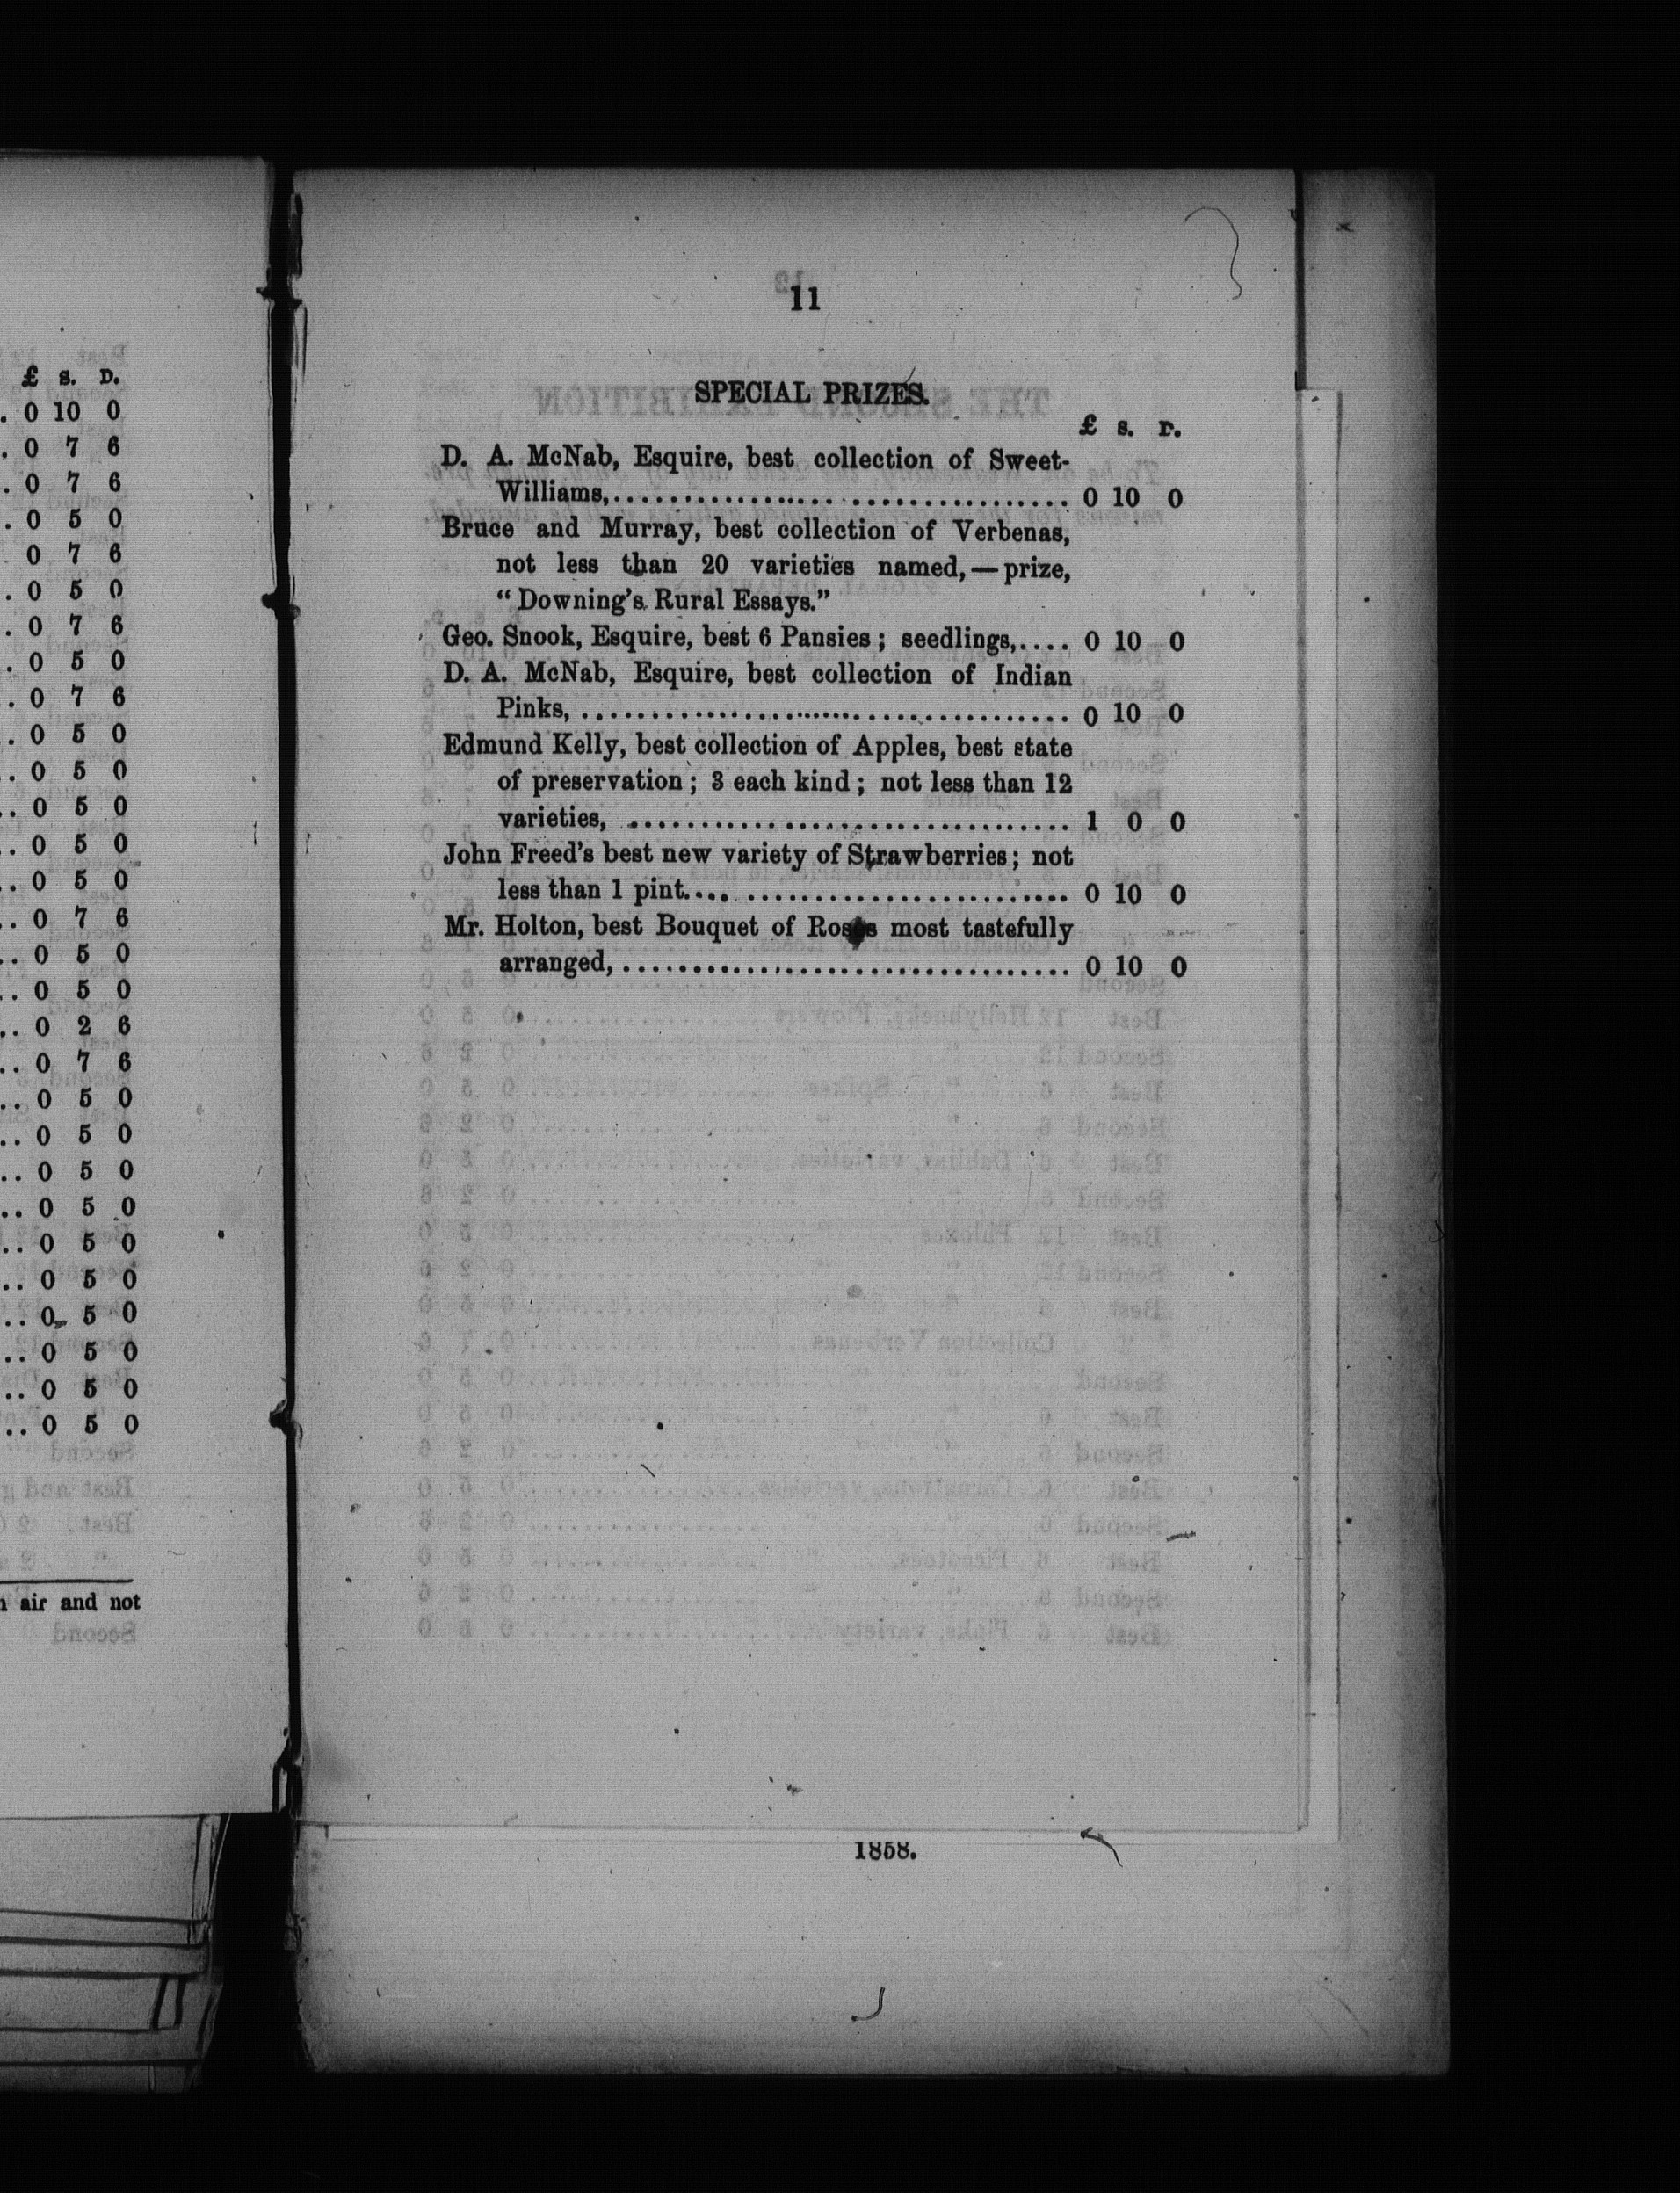 £ s. D.
. 0 10 0
. 0 7 6
. 0 7 6
. 0 5 0
0 7 6
. 0 5 0
. 0 7 6
. 0 5 0
. 0 7 6
. 0 5 0
.. 0 5 0
.. 0 5 0
.. 0 5 0
.. 0 5 0
.. 0 7 6
.. 0 5 0
.. 0 5 0
.. 0 2 6
.. 0 7 6
.. 0 5 0
.. 0 5 0
.. 0 5 0
.. 0 5 0
.. 0 5 0
.. 0 5 0
.. 0 5 0
.. 0 5 0
.. 0 5 0
.. 0 5 0
air and not
11
SPECIAL PRIZES.
£ s. D.
D. A. McNab, Esquire, best collection of Sweet-
Williams,.................................... 0 10 0
Bruce and Murray, best collection of Verbenas,
not less than 20 varieties named,—prize,
“Downing's Rural Essays.”
Geo. Snook, Esquire, best 6 Pansies; seedlings,.... 0 10 0
D. A. McNab, Esquire, best collection of Indian
Pinks, ...................................... 0 10 0
Edmund Kelly, best collection of Apples, best state
of preservation; 3 each kind; not less than 12
varieties, .................................. 1 0 0
John Freed's best new variety of Strawberries; not
less than 1 pint.... ........................ 0 10 0
Mr. Holton, best Bouquet of Roses most tastefully
arranged, ................................... 0 10 0
1858.